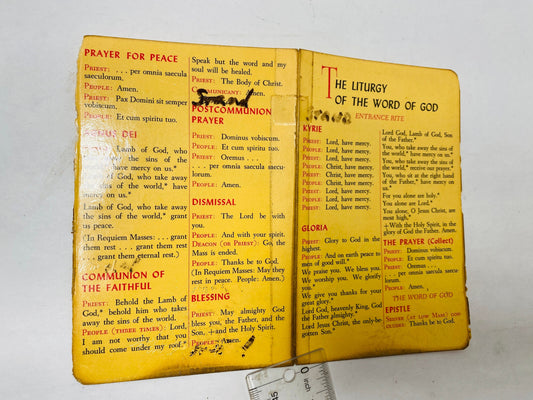 PRAYER FOR PEACE
PRIEST: . . . per omnia saecula
saeculorum.
PEOPLE: Amen.
PRIEST: Pax Domini sit semper
vobiscum.
PEOPLE: Et cum spiritu tuo.
AGNUS DEI
Lamb of God, who take
away the sins of the world,*
have mercy on us.*
Lamb of God, who take away
the sins of the world,* have
mercy on us.*
Lamb of God, who take away
the sins of the world,* grant
us peace.
(In Requiem Masses: . . . grant
them rest . . . grant them rest
. . . grant them eternal rest.)
COMMUNION OF
THE FAITHFUL
PRIEST: Behold the Lamb of
God,* behold him who takes
away the sins of the world.
PEOPLE (THREE TIMES): Lord,
I am not worthy that you
should come under my roof.*
Speak but the word and my
soul will be healed.
PRIEST: The Body of Christ.
COMMUNICANT: Amen.
Stand
POSTCOMMUNION
PRAYER
PRIEST: Dominus vobiscum.
PEOPLE: Et cum spiritu tuo.
PRIEST: Oremus . . .
. . . per omnia saecula saecu-
lorum.
PEOPLE: Amen.
DISMISSAL
PRIEST: The Lord be with
you.
PEOPLE: And with your spirit.
DEACON (OR PRIEST): Go, the
Mass is ended.
PEOPLE: Thanks be to God.
(In Requiem Masses: May they
rest in peace. PEOPLE: Amen.)
BLESSING
PRIEST: May almighty God
bless you, the Father, and the
Son, +and the Holy Spirit.
PEOPLE: Amen.
THE LITURGY
OF THE WORD OF GOD
ENTRANCE RITE
KYRIE
PRIEST: Lord, have mercy.
PEOPLE: Lord, have mercy.
PRIEST: Lord, have mercy.
PEOPLE: Christ, have mercy.
PRIEST: Christ, have mercy.
PEOPLE: Christ, have mercy.
PRIEST: Lord, have mercy.
PEOPLE: Lord, have mercy.
PRIEST: Lord, have mercy.
GLORIA
PRIEST: Glory to God in the
highest.
PEOPLE: And on earth peace to
men of good will.*
We praise you. We bless you.
We worship you. We glorify
you.*
We give you thanks for your
great glory.*
Lord God, heavenly King, God
the Father almighty.*
Lord Jesus Christ, the only-be-
gotten Son.*
Lord God, Lamb of God, Son
of the Father,*
You, who take away the sins of
the world,* have mercy on us.
You, who take away the sins of
the world,* receive our prayer.*
You, who sit at the right hand
of the Father,* have mercy on
us.
For you alone are holy.*
You alone are Lord.*
You alone, O Jesus Christ, are
most high,*
+With the Holy Spirit, in the
glory of God the Father. Amen.
THE PRAYER (Collect)
PRIEST: Dominus vobiscum.
PEOPLE: Et cum spiritu tuo.
PRIEST: Oremus . . .
. . . per omnia saecula saecu-
lorum.
PEOPLE: Amen.
THE WORD OF GOD
EPISTLE
SERVER (AT LOW MASS) con-
cludes: Thanks be to God.
0 inch 1